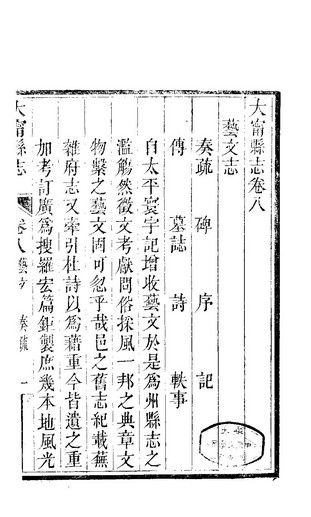 大甯縣志卷八
藝文志
奏疏 碑 序 記
傳 墓誌 詩 軼事
自太平寰宇記增收藝文於是為州縣志之
濫觴然徵文考獻問俗採風一邦之典章文
物繫之藝文固可忽乎哉邑之舊志紀載蕪
雜府志又牽引杜詩以為藉重今皆遺之重
加考訂廣為搜羅宏篇鉅製庶幾本地風光
大甯縣志 卷八藝文 奏疏 一